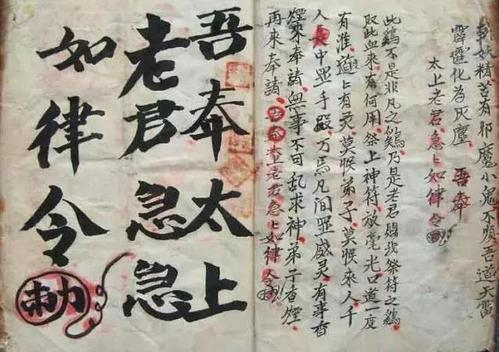 精若有邪魔小鬼不順吾道天雷
霹靂化為灰塵 吾奉
太上老君急々如律令
此鷄不是非凡之鷄乃是老君賜我祭符之鷄
取此血來有何用祭上神符放毫光口道一度
有准 々有灵莫 弟子莫 來人千
人 中显手段万 凡间显威灵有事香
煙來奉請無事不可乱求神弟子香煙
再來奉請 奉 老君急々如律令
吾奉太上
老君急急
如律令
勅